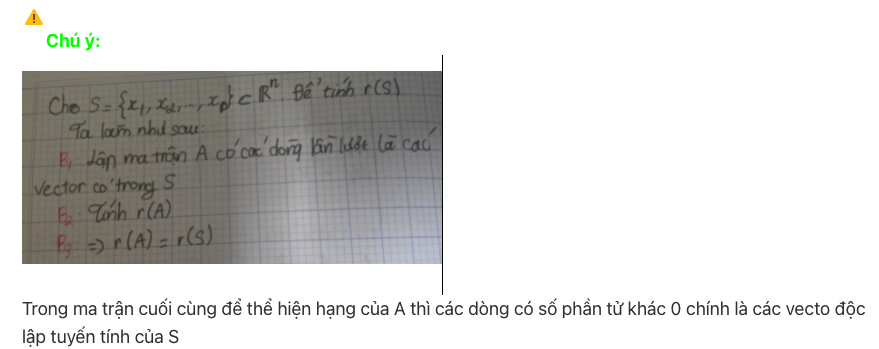 Chú ý:
Cho S = {x₁, x₂, ..., xₚ} ⊂ Rⁿ. Để tính r(S)
Ta làm như sau:
B₁ Lập ma trận A có các dòng lần lượt là các
vector có trong S
B₂: Tính r(A)
B₃: => r(A) = r(S)
Trong ma trận cuối cùng để thể hiện hạng của A thì các dòng có số phần tử khác 0 chính là các vecto độc
lập tuyến tính của S